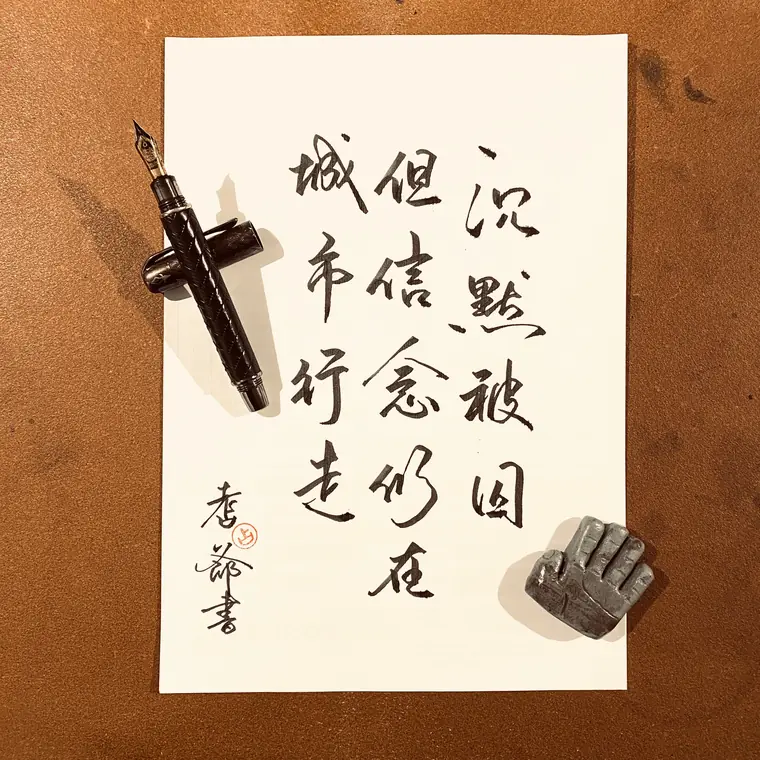 沉默被囚
但信念仍在
城市行走
書